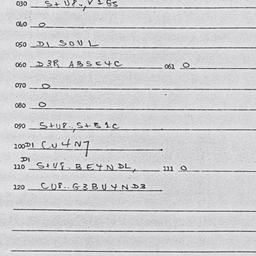 030 S+U8., V165
040 O
050 DI SOUL
060 D3R ABSE4C 061 O
070 O
080 O
090 S+U8., S+51C
100 DI CU4N7
DI
110 S+U8. BE4NDL, 111 O
120 CU8.. G3BU4ND3